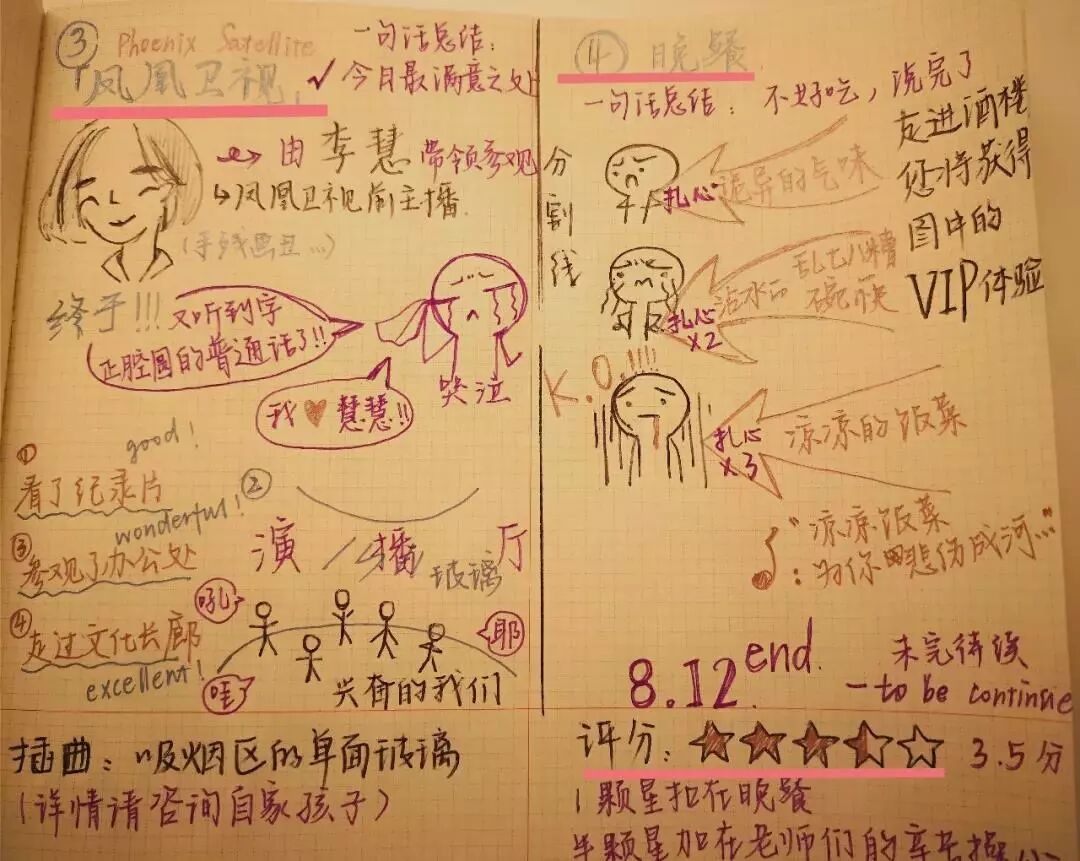 ③ Phoenix Satellite
「凤凰卫视」
一句话总结:
✓今日最满意之处
由李慧带领参观
↳凤凰卫视前主播
(手残画丑...)
终于!!!
又听到字
正腔圆的普通话了!!
我♥慧慧!!
哭泣
good!
①
看了纪录片
wonderful!
②
演播厅
玻璃
③
参观了办公处
④
走过文化长廊
excellent!
吼
耶
哇
兴奋的我们
插曲:吸烟区的单面玻璃
(详情请咨询自家孩子)
分割线
④ 晚餐
一句话总结:不好吃,洗完了
走进酒楼
您将获得
图中的
VIP体验
扎心
诡异的气味
扎心
x2
沾水的
乱七八糟
碗筷
K.O.!!!!
扎心
x3
凉凉的饭菜
♪"凉凉饭菜
:为你 悲伤成河..."
8.12 end.
未完待续
—to be continue
评分:★★★⯪☆ 3.5分
1颗星扣在晚餐
半颗星加在老师们的辛苦